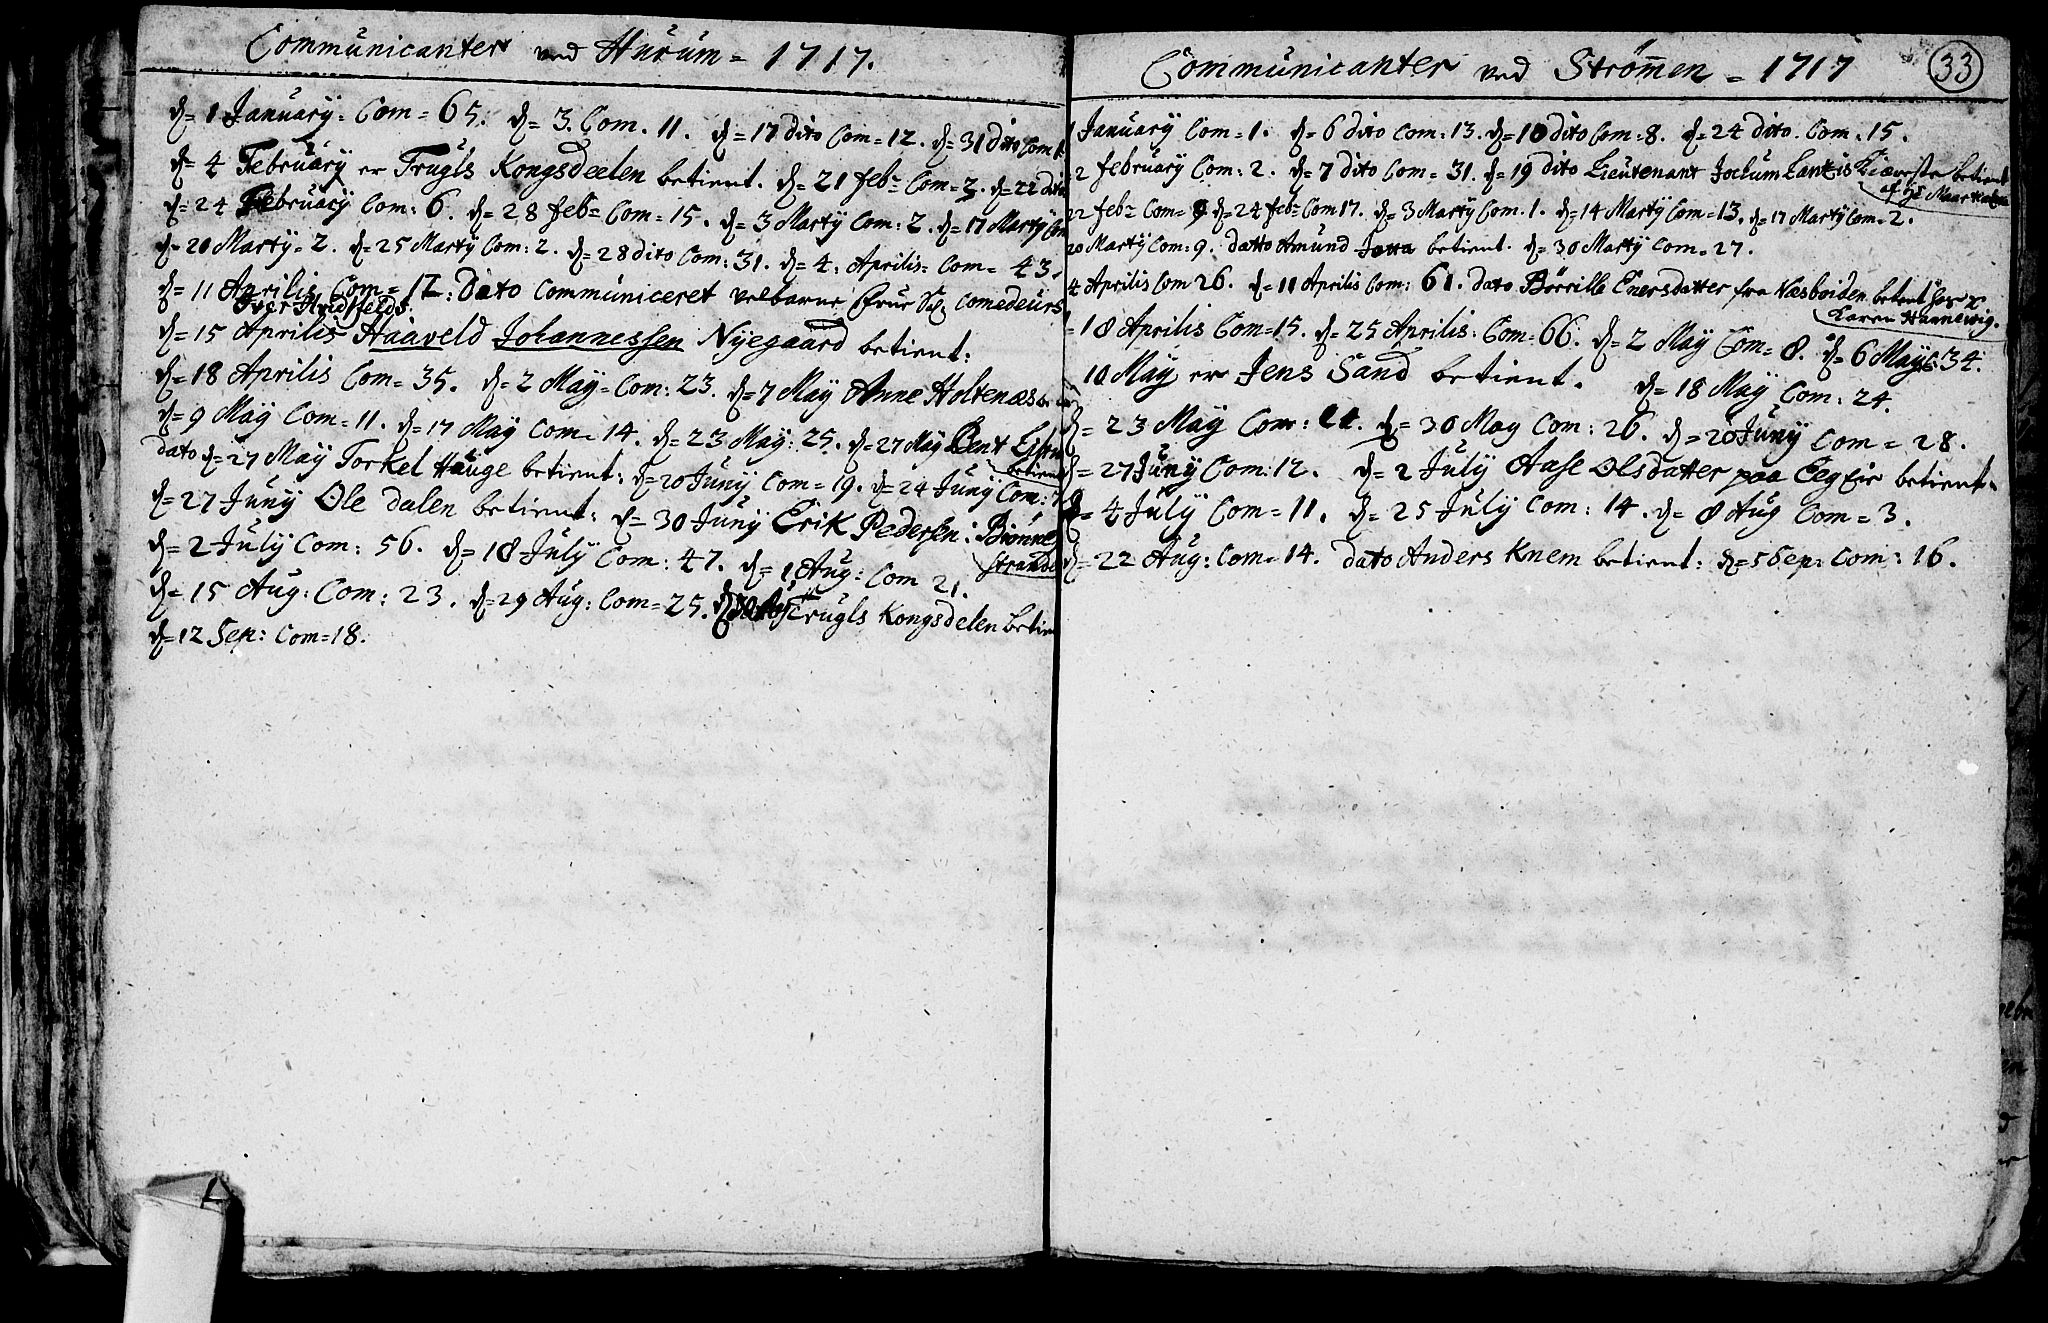 Communicanter ved Hurum = 1717.
d= 1 January: Com = 65. d= 3. Com. 11. d= 17 dito Com = 12. d= 31 dito Com
d= 4 February er Trugls Kongsdeelen betient. d= 21 febr: Com = 3. d= 22 dito
d= 24 February Com: 6. d= 28 feb= Com = 15. d= 3 Marty Com: 2. d= 17 Marty Com
d= 20 Marty = 2. d= 25 Marty Com: 2. d= 28 dito Com: 31. d= 4: Aprilis = Com = 43.
d= 11 Aprilis Com = 12: Dato Communiceret velbaarne Frue Comedeurs
Iver Hvidtfelds.
d= 15 Aprilis Haaveld Johannessen Nyegaard betient:
d= 18 Aprilis Com = 35. d= 2 May = Com: 23. d= 7 May Anne Holtenæs
d= 9 May Com = 11. d= 17 May Com = 14. d= 23 May: 25. d= 27 May Bent
betient
dato d= 27 May Torkel Hauge betient: d= 20 Juny Com = 19. d= 24 Juny Com: 7
d= 27 Juny Ole Dalen betient: d= 30 Juny Erik Pedersen: Biønne
strande
d= 2 July Com: 56. d= 18 July Com: 47. d= 1 Aug: Com 21.
d= 15 Aug: Com: 23. d= 29 Aug: Com = 25. Trugls Kongsdelen betien
d= 12 Sep: Com = 18.
Communicanter ved Strømmen = 1717
33
1 January Com = 1. d= 6 dito Com: 13. d= 10 dito Com = 8. d= 24 dito. Com = 15.
2 February Com: 2. d= 7 dito Com = 31. d= 19 dito Lieutenant Jochum Kiæreste betient
22 feb= Com = 9 d= 24 feb= Com 17. d= 3 Marty Com. 1. d= 14 Marty Com = 13. d= 17 Marty Com = 2.
20 Marty Com: 9. datto Amund betient. d= 30 Marty Com = 27.
4 Aprilis Com 26. d= 11 Aprilis Com: 61. dato Børrille Enersdatter fra Næsboiden betient
Karen Hannewig.
18 Aprilis Com = 15. d= 25 Aprilis: Com = 66. d= 2 May Com = 8. d= 6 May C: 34.
10 May er Jens Sand betient. d= 18 May Com: 24.
d= 23 May Com: d= 30 May Com: 26. d= 20 Juny Com = 28.
d= 27 Juny Com: 12. d= 2 July Aase Olsdatter paa Eegeie betient
d= 4 July Com = 11. d= 25 July Com: 14. d= 8 Aug Com = 3.
d= 22 Aug: Com = 14. dato Anders Knem betient: d= 5 Sep: Com: 16.